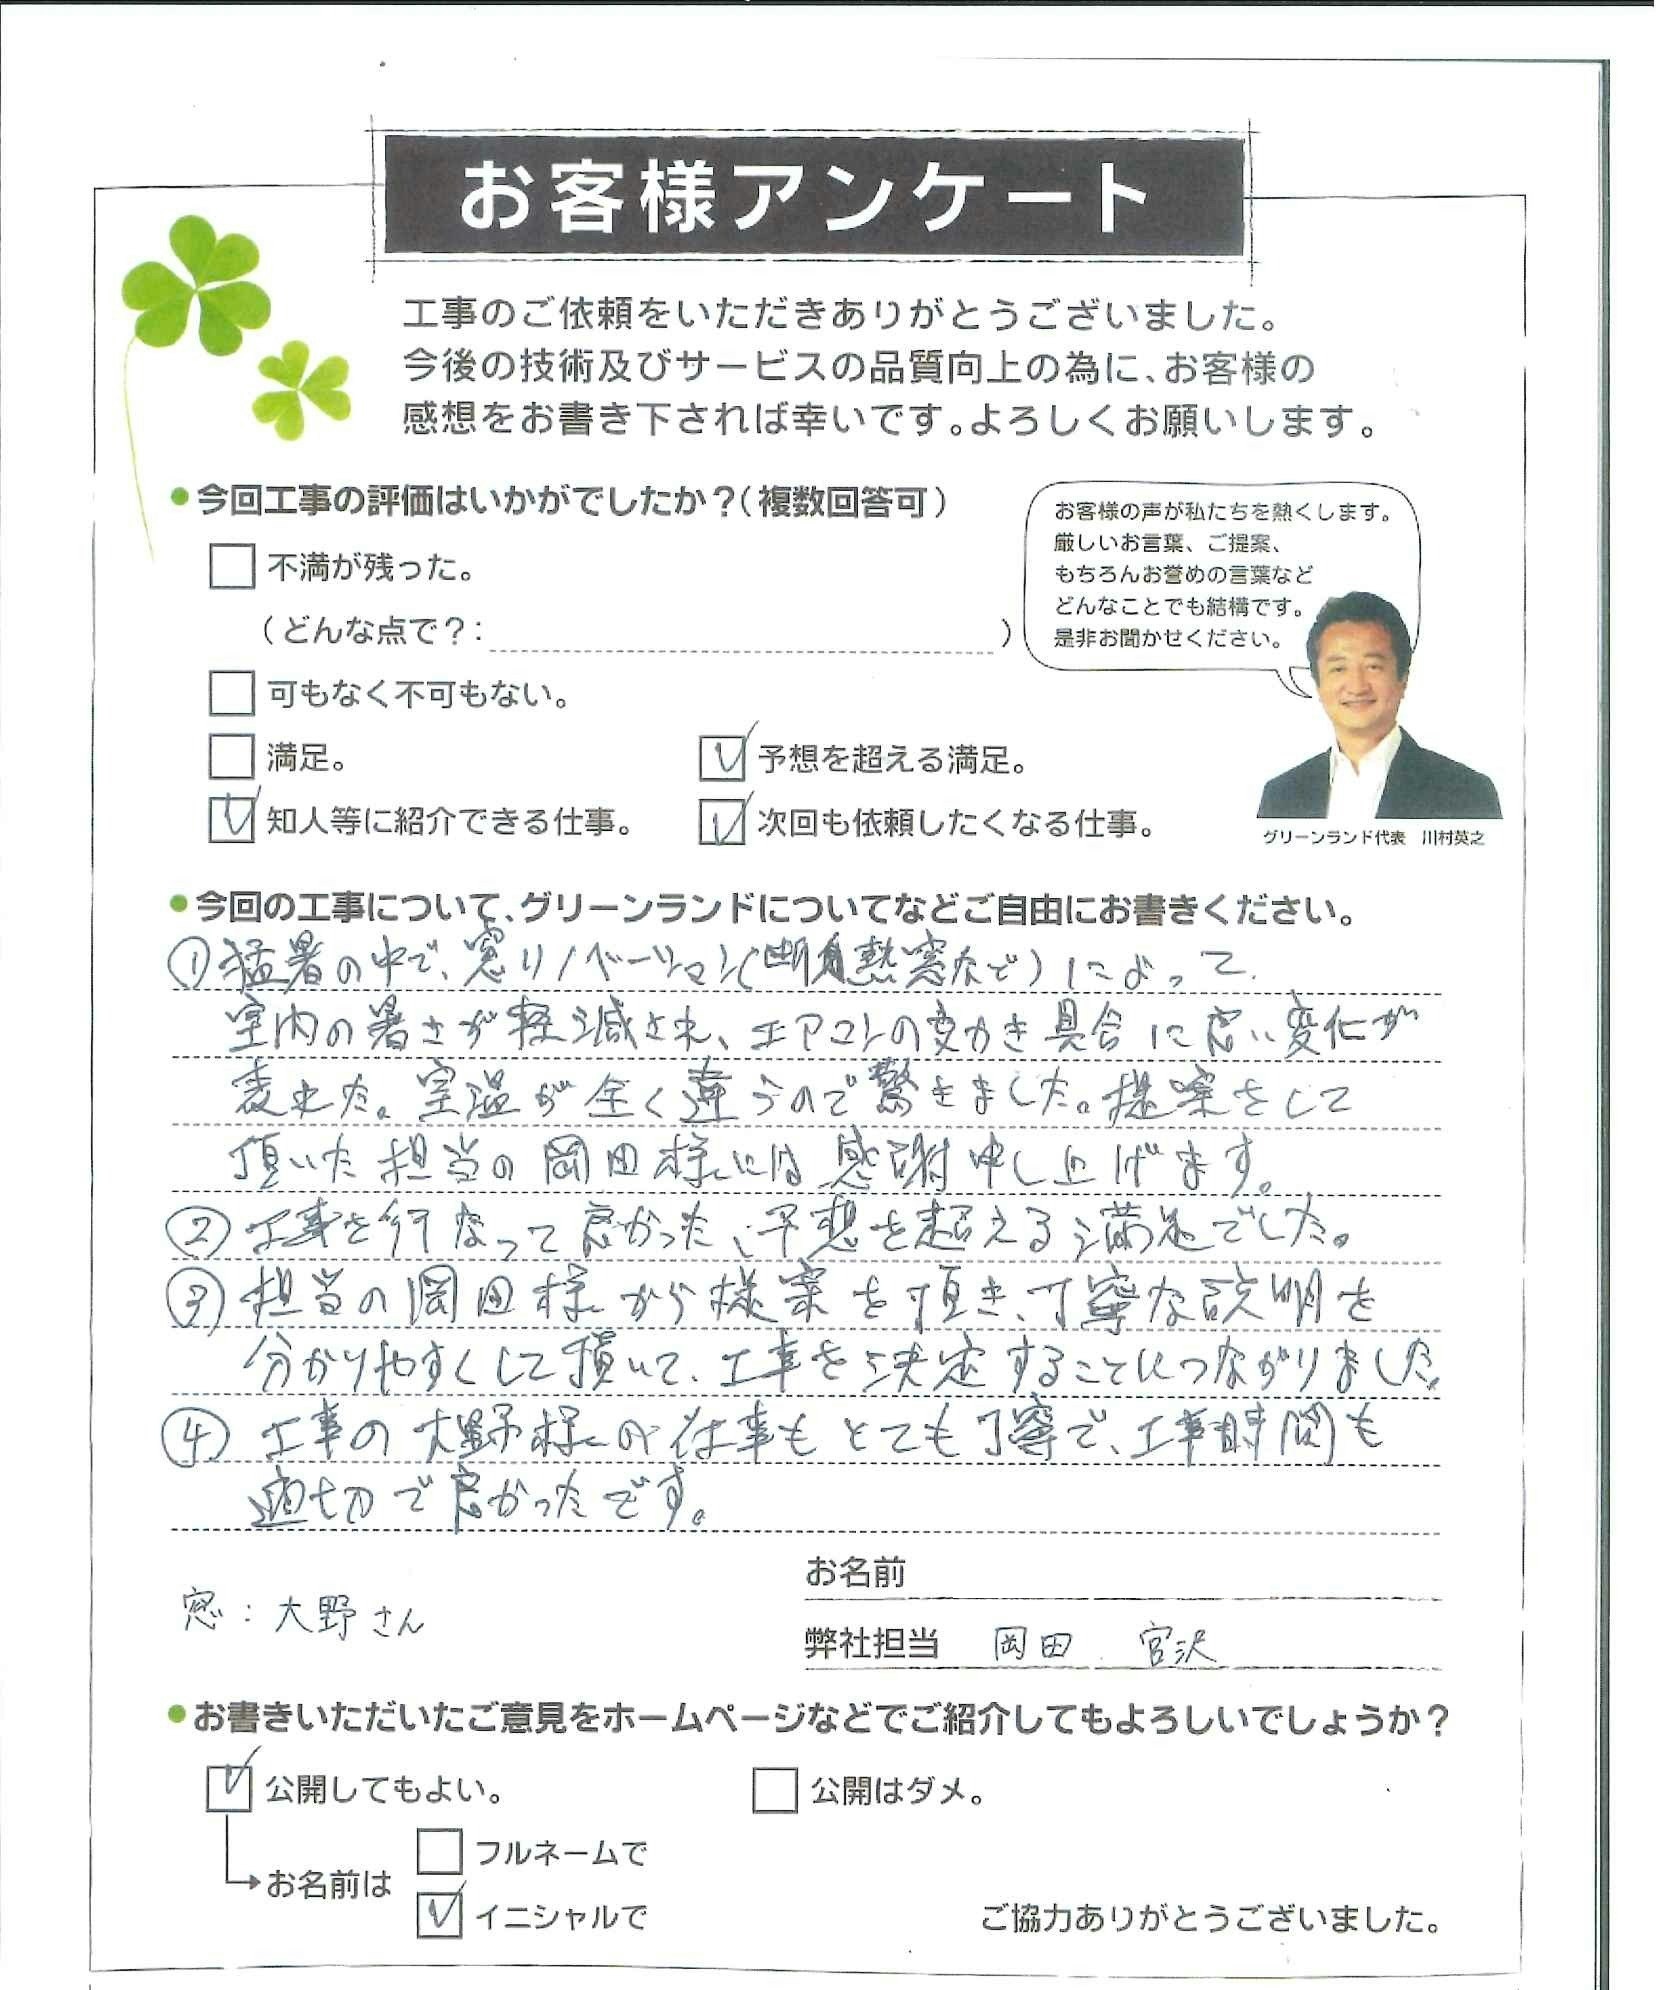 お客様アンケート
工事のご依頼をいただきありがとうございました。
今後の技術及びサービスの品質向上の為に、お客様の
感想をお書き下されば幸いです。よろしくお願いします。
●今回工事の評価はいかがでしたか？(複数回答可)
お客様の声が私たちを熱くします。
厳しいお言葉、ご提案、
もちろんお誉めの言葉など
どんなことでも結構です。
是非お聞かせください。
不満が残った。
(どんな点で？: )
可もなく不可もない。
満足。
予想を超える満足。
知人等に紹介できる仕事。
次回も依頼したくなる仕事。
グリーンランド代表 川村英之
●今回の工事について、グリーンランドについてなどご自由にお書きください。
①猛暑の中で、窓リノベーション(断熱窓など)によって、
室内の暑さが軽減され、エアコンの効き具合に良い変化が
表れた。室温が全く違うので驚きました。提案をして
頂いた担当の岡田様には感謝申し上げます。
②工事を行なって良かった、予想を超える満足でした。
③担当の岡田様から提案を頂き、丁寧な説明を
分かりやすくして頂いて、工事を決定することにつながりました。
④工事の大野様の仕事もとても丁寧で、工事時間も
適切で良かったです。
お名前
窓：大野さん
弊社担当 岡田 宮沢
●お書きいただいたご意見をホームページなどでご紹介してもよろしいでしょうか？
公開してもよい。
公開はダメ。
お名前は
フルネームで
イニシャルで
ご協力ありがとうございました。